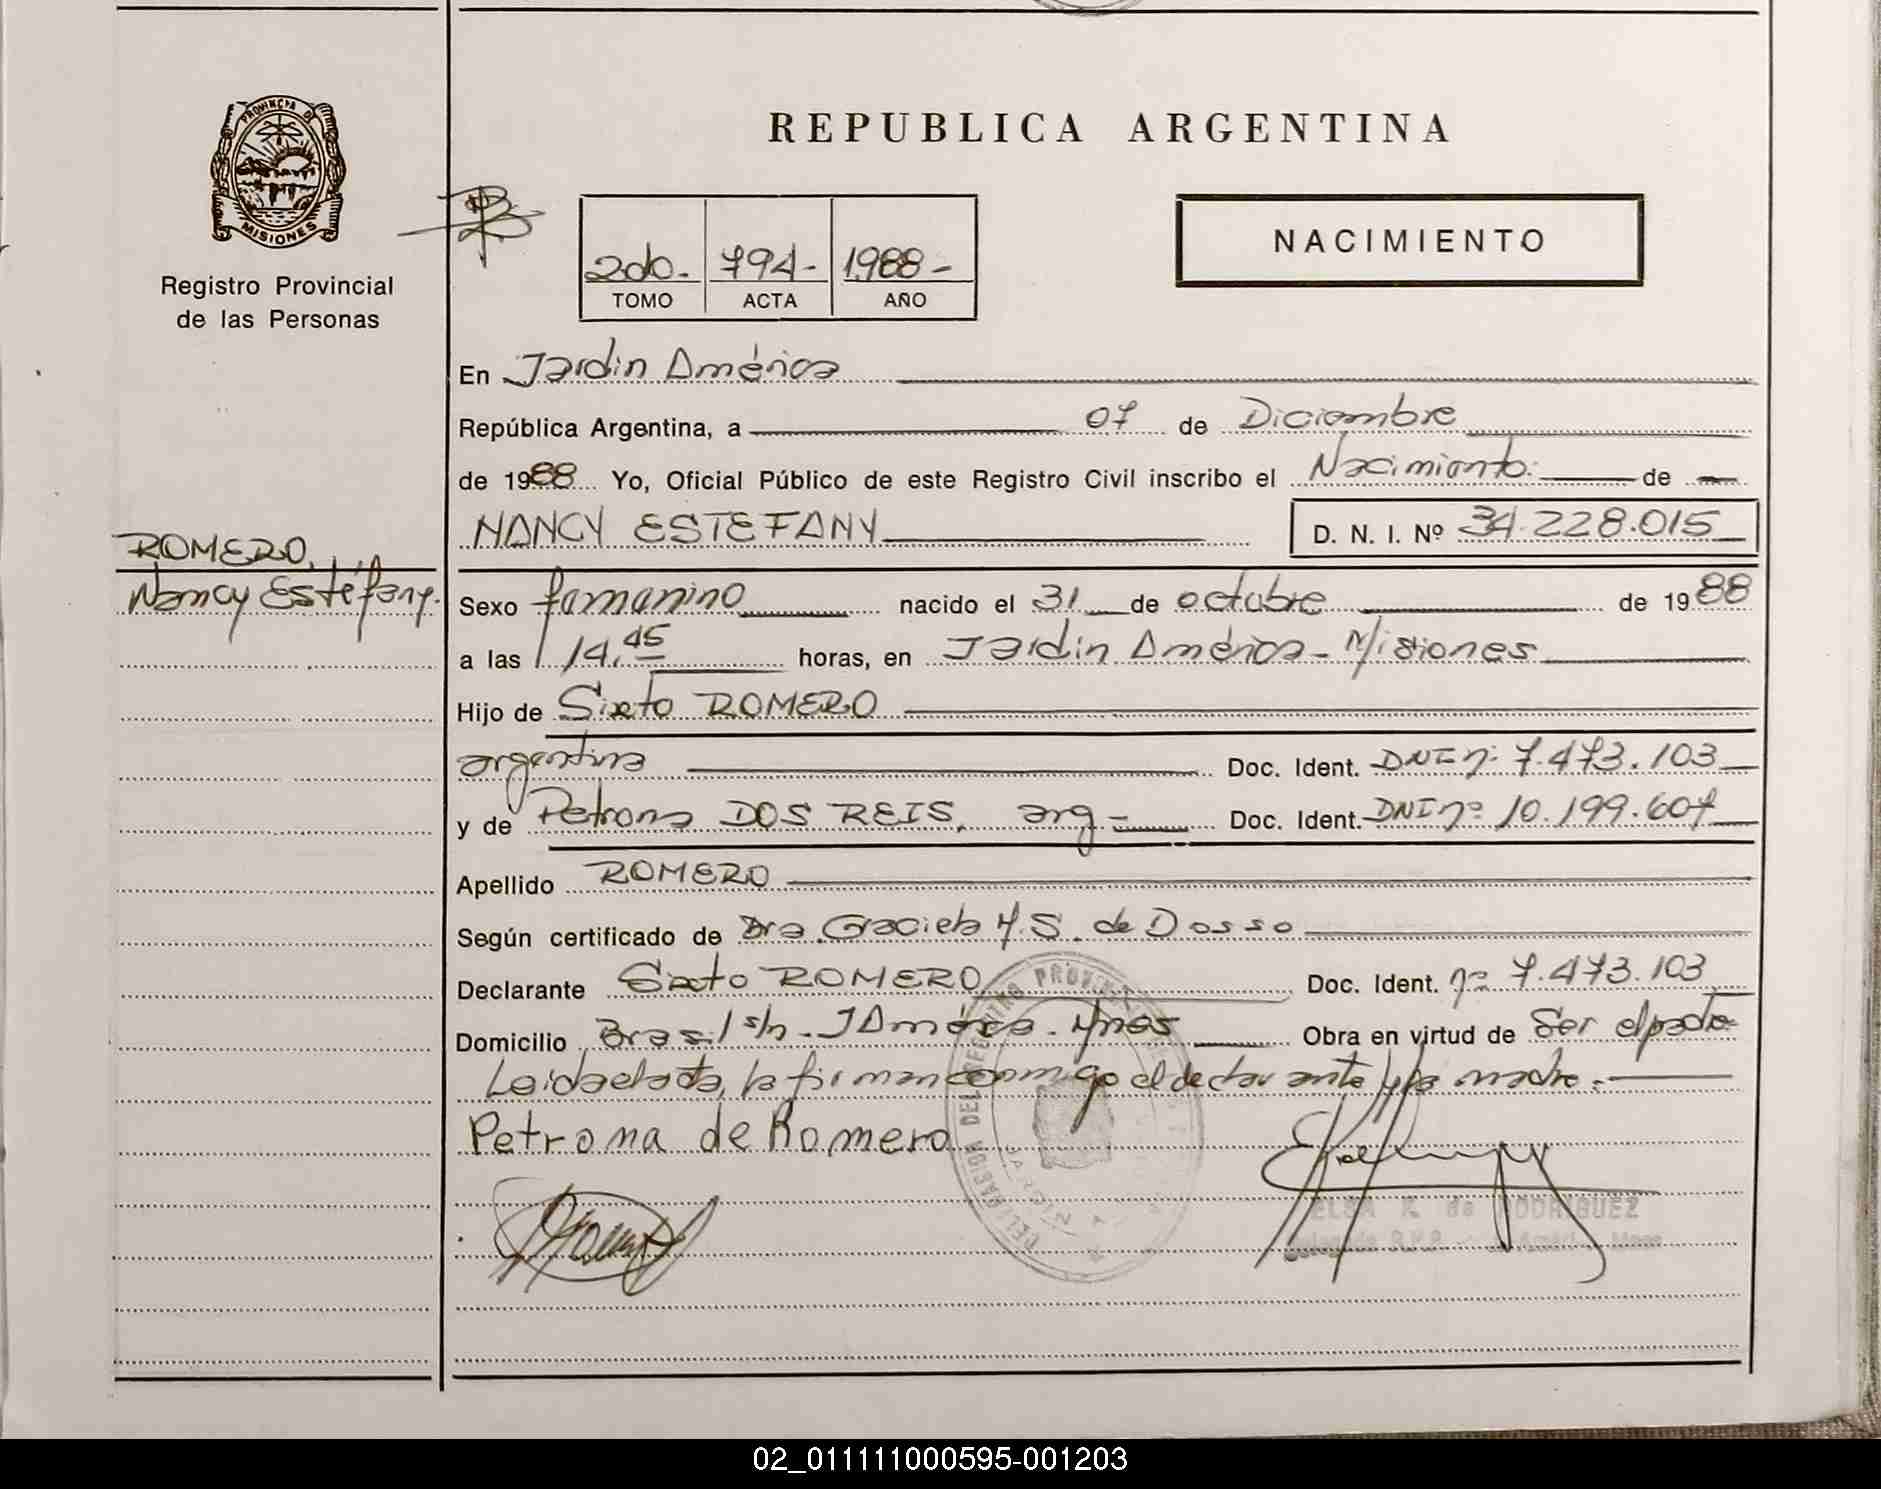 PROVINCIA DE
MISIONES
Registro Provincial
de las Personas
REPUBLICA ARGENTINA
2do.- 794- 1988-
TOMO ACTA AÑO
NACIMIENTO
En Jardin América
República Argentina, a 07 de Diciembre
de 1988 Yo, Oficial Público de este Registro Civil inscribo el Nacimiento. de
NANCY ESTEFANY D. N. I. Nº 34.228.015
ROMERO,
Nancy Estéfany.
Sexo femenino nacido el 31 de octubre de 1988
a las 14,45 horas, en Jardin América - Misiones
Hijo de Sixto ROMERO
argentina Doc. Ident. DNI nº 7.473.103
y de Petrona DOS REIS, arg- Doc. Ident. DNI nº 10.199.607
Apellido ROMERO
Según certificado de Dra. Graciela M. S. de Dosso
Declarante Sixto ROMERO Doc. Ident. nº 7.473.103
Domicilio Brasil s/n - J América. Mnes Obra en virtud de Ser el padre
Leida el acta, la firman conmigo el declarante y la madre.-
Petrona de Romero
DELEGACION DEL REGISTRO PROVINCIAL
ELSA de RODRIGUEZ
02_011111000595-001203